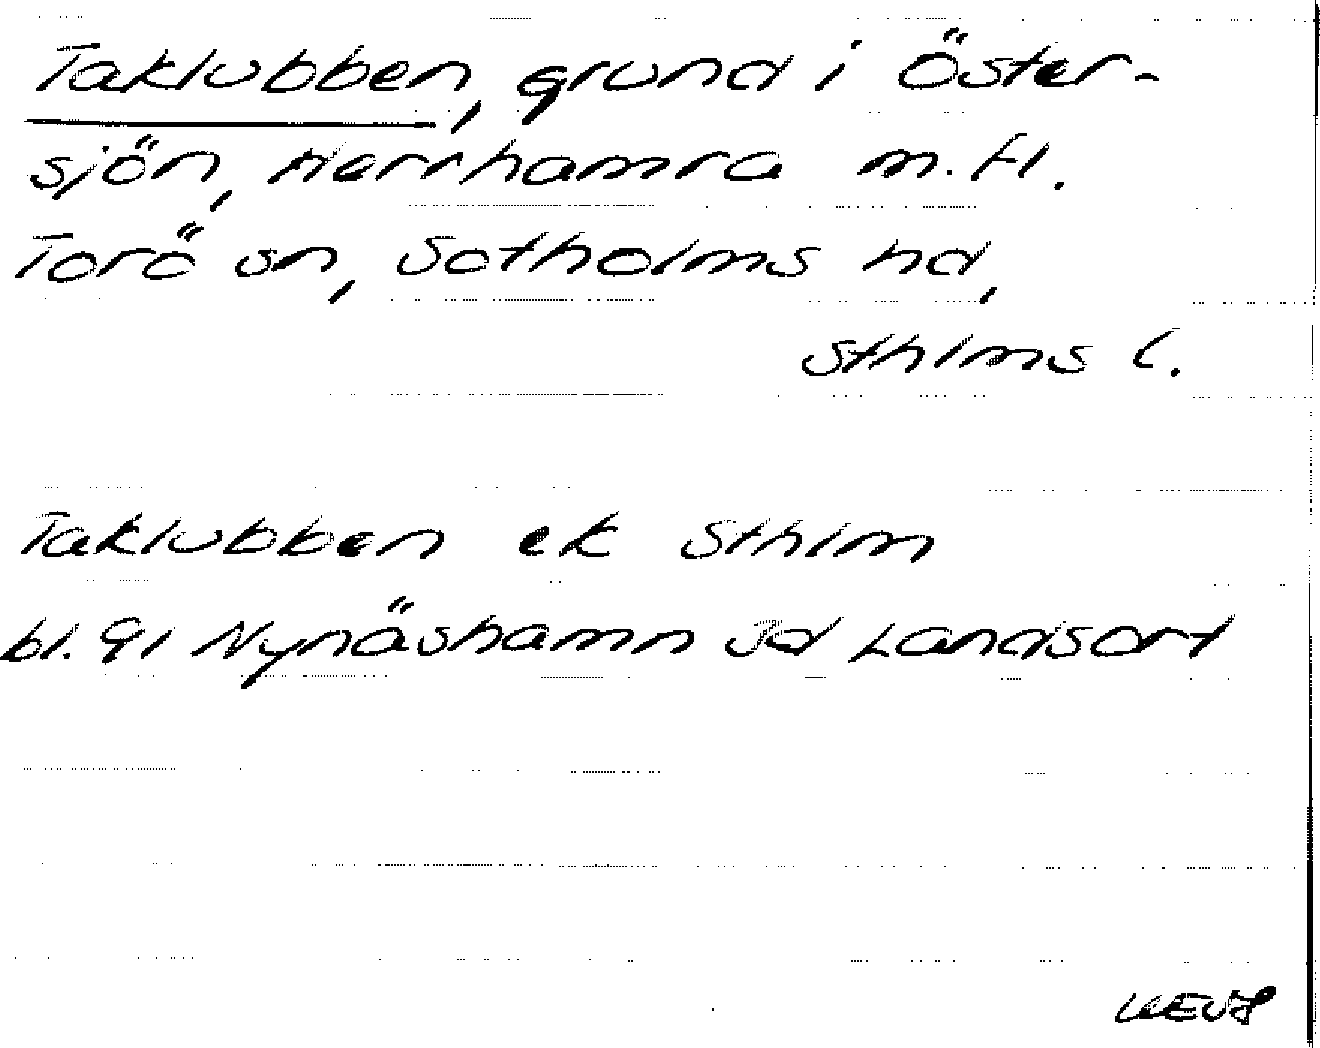 Taklubben, grund i Öster-
sjön, Herrhamra m. fl.
Torö sn, Sotholms hd,
Sthlms l.
Taklubben ek Sthlm
bl. 91 Nynäshamn Jd Landsort